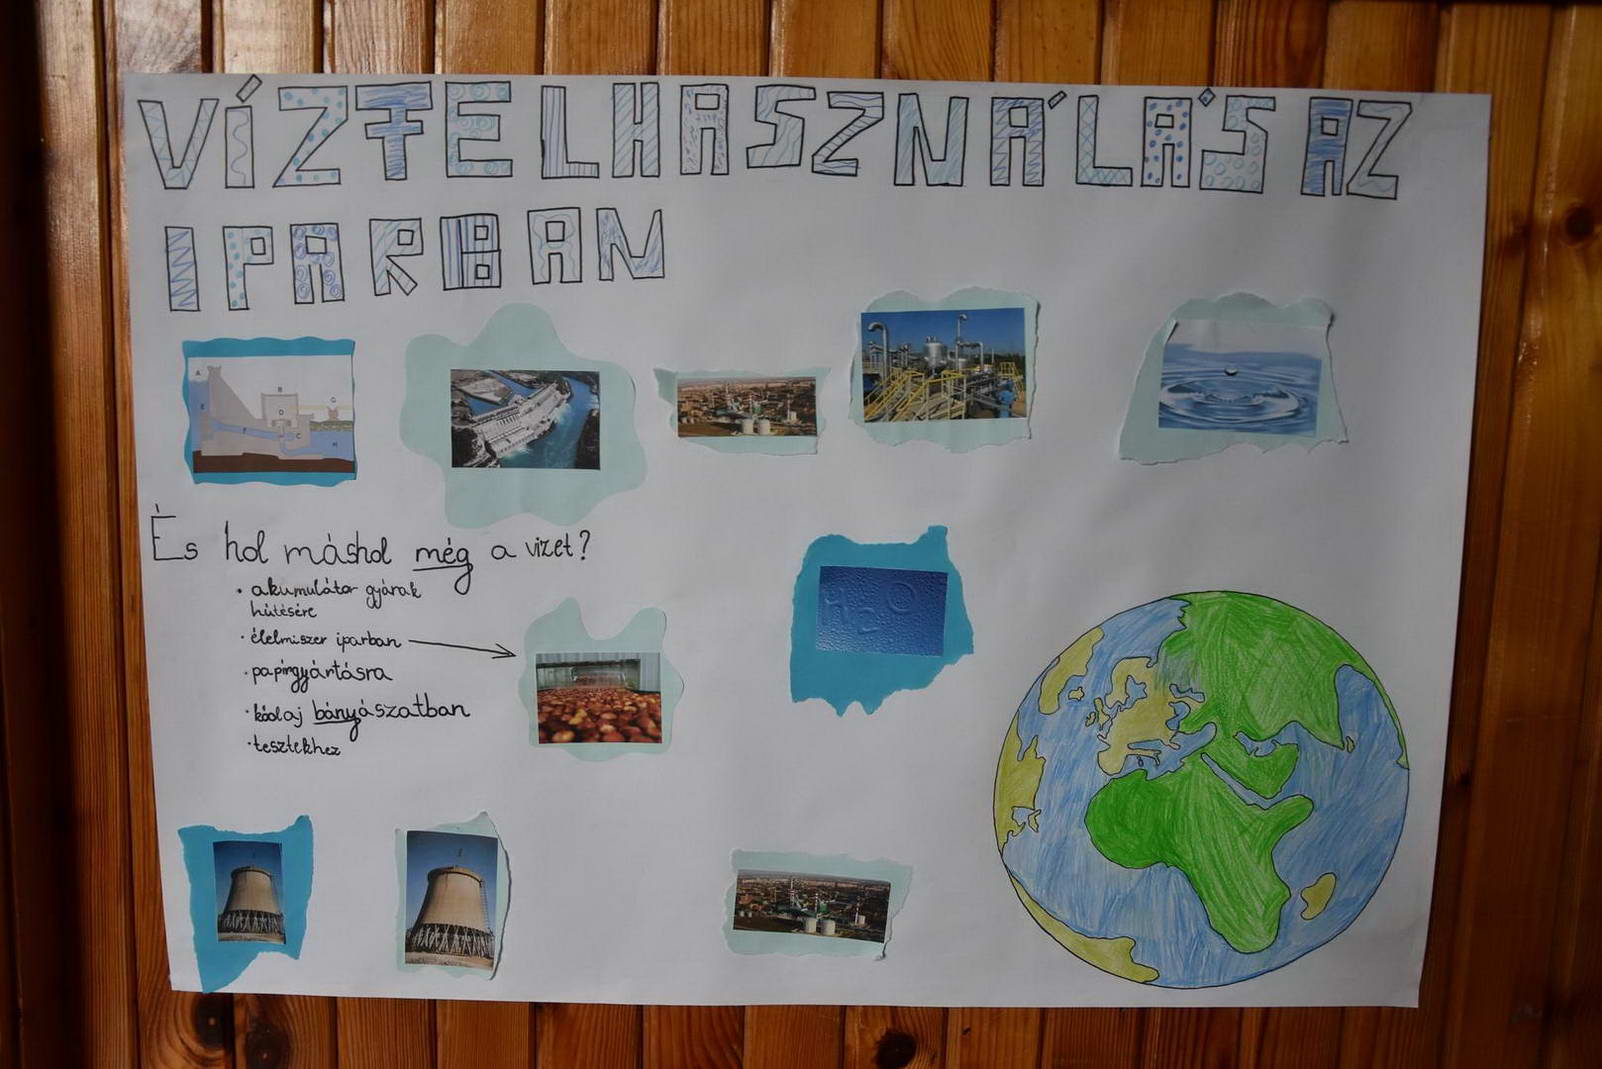 VÍZFELHASZNÁLÁS AZ
IPARBAN
A
B
G
D
E
F
C
H
És hol máshol még a vizet?
• akumulátor gyárak
hűtésére
• élelmiszer iparban
• papírgyártásra
• kőolaj bányászatban
• tesztekhez
H2O